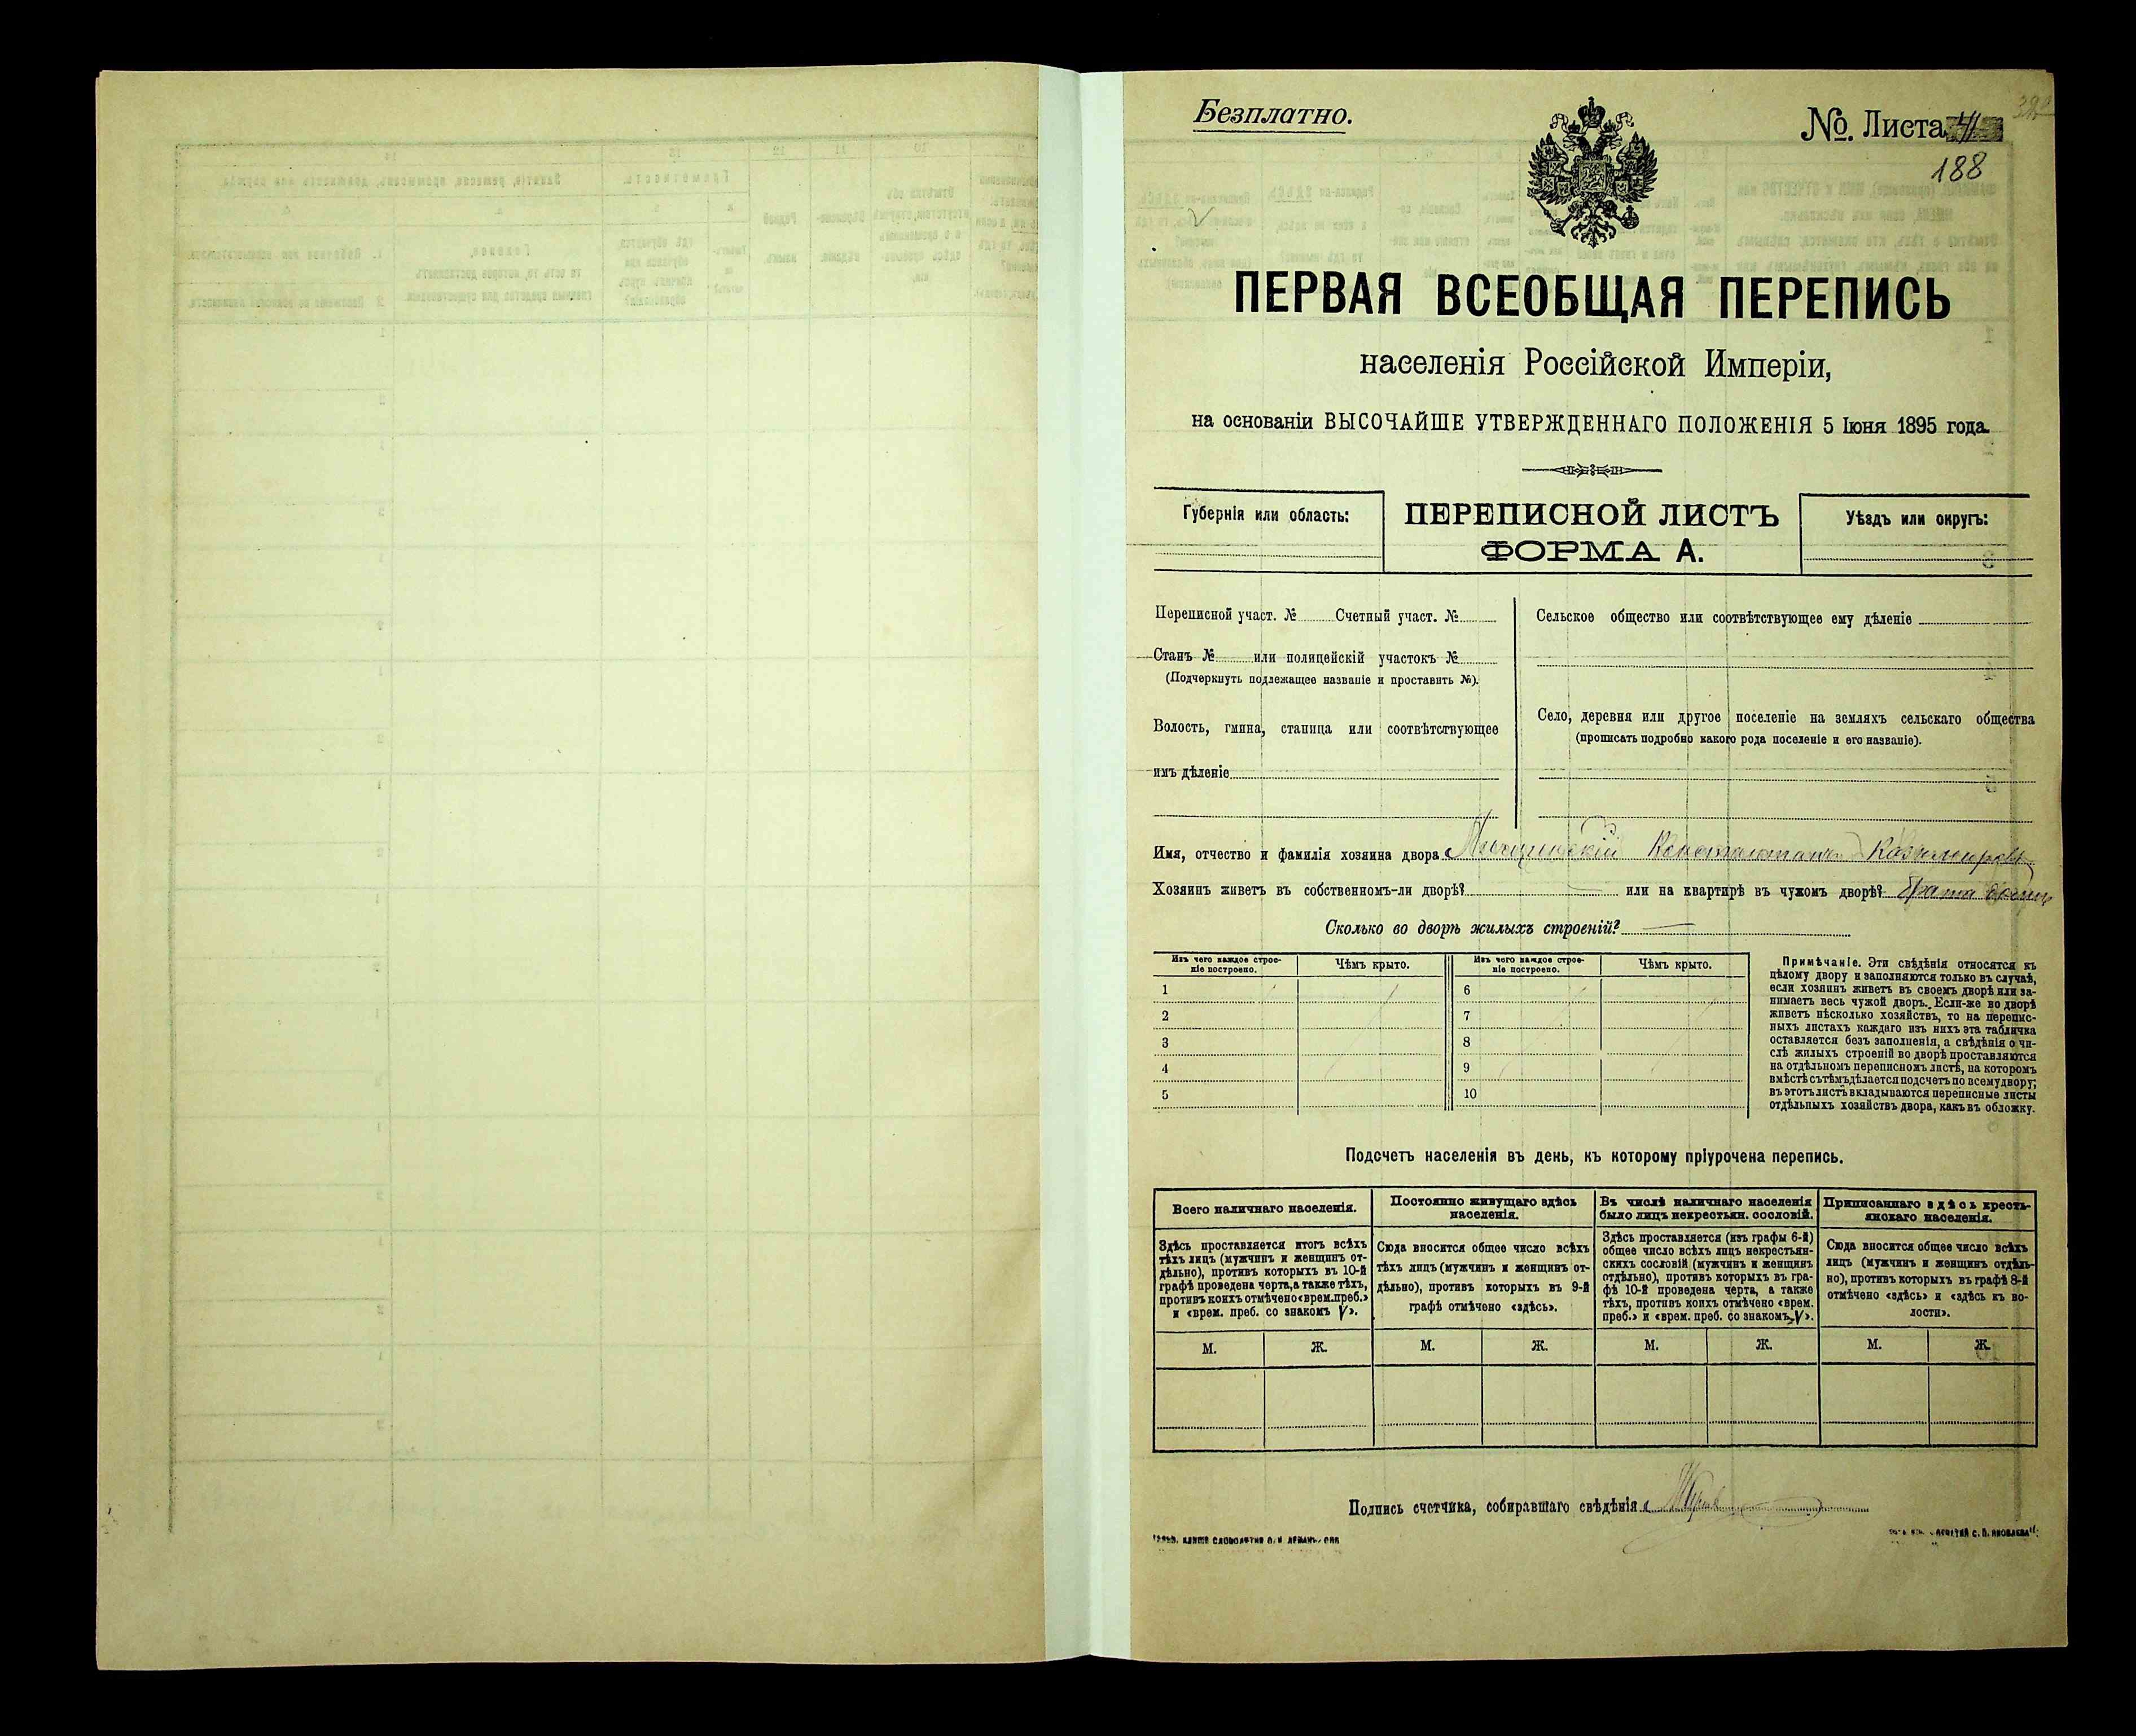 Безплатно.
№. Листа 41
188
ПЕРВАЯ ВСЕОБЩАЯ ПЕРЕПИСЬ
населенія Россійской Имперіи,
на основаніи ВЫСОЧАЙШЕ УТВЕРЖДЕННАГО ПОЛОЖЕНІЯ 5 Іюня 1895 года.
Губернія или область:
ПЕРЕПИСНОЙ ЛИСТЪ
ФОРМА А.
Уѣздъ или округъ:
Переписной участ. № Счетный участ. №
Станъ № или полицейскій участокъ №
(Подчеркнуть подлежащее названіе и проставить №).
Волость, гмина, станица или соотвѣтствующее
имъ дѣленіе
Сельское общество или соотвѣтствующее ему дѣленіе
Село, деревня или другое поселеніе на земляхъ сельскаго общества
(прописать подробно какого рода поселеніе и его названіе).
Имя, отчество и фамилія хозяина двора Константинъ Казимировъ
Хозяинъ живетъ въ собственномъ-ли дворѣ? — или на квартирѣ въ чужомъ дворѣ? брата
Сколько во дворѣ жилыхъ строеній? —
Изъ чего каждое строе-
ніе построено.
Чѣмъ крыто.
Изъ чего каждое строе-
ніе построено.
Чѣмъ крыто.
1 6
2 7
3 8
4 9
5 10
Примѣчаніе. Эти свѣдѣнія относятся къ
цѣлому двору и заполняются только въ случаѣ,
если хозяинъ живетъ въ своемъ дворѣ или за-
нимаетъ весь чужой дворъ. Если-же во дворѣ
живетъ нѣсколько хозяйствъ, то на перепис-
ныхъ листахъ каждаго изъ нихъ эта табличка
оставляется безъ заполненія, а свѣдѣнія о чи-
слѣ жилыхъ строеній во дворѣ проставляются
на отдѣльномъ переписномъ листѣ, на которомъ
вмѣстѣ съ тѣмъ дѣлается подсчетъ по всему двору;
въ этотъ листъ вкладываются переписные листы
отдѣльныхъ хозяйствъ двора, какъ въ обложку.
Подсчетъ населенія въ день, къ которому пріурочена перепись.
Всего наличнаго населенія.
Здѣсь проставляется итогъ всѣхъ
тѣхъ лицъ (мужчинъ и женщинъ от-
дѣльно), противъ которыхъ въ 10-й
графѣ проведена черта, а также тѣхъ,
противъ коихъ отмѣчено «врем. преб.»
и «врем. преб. со знакомъ V».
Постоянно живущаго здѣсь
населенія.
Сюда вносится общее число всѣхъ
тѣхъ лицъ (мужчинъ и женщинъ от-
дѣльно), противъ которыхъ въ 9-й
графѣ отмѣчено «здѣсь».
Въ числѣ наличнаго населенія
было лицъ некрестьян. сословій.
Здѣсь проставляется (изъ графы 6-й)
общее число всѣхъ лицъ некрестьян-
скихъ сословій (мужчинъ и женщинъ
отдѣльно), противъ которыхъ въ гра-
фѣ 10-й проведена черта, а также
тѣхъ, противъ коихъ отмѣчено «врем.
преб.» и «врем. преб. со знакомъ V».
Приписаннаго здѣсь кресть-
янскаго населенія.
Сюда вносится общее число всѣхъ
лицъ (мужчинъ и женщинъ отдѣль-
но), противъ которыхъ въ графѣ 8-й
отмѣчено «здѣсь» и «здѣсь къ во-
лости».
М. Ж. М. Ж. М. Ж. М. Ж.
Подпись счетчика, собиравшаго свѣдѣнія